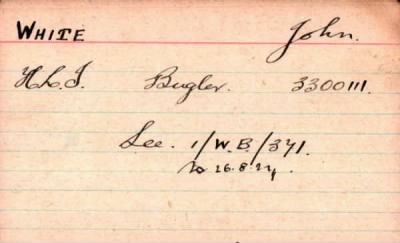 WHITE John.
H.L.I. Bugler. 3300111.
See. 1/W.B/371.
26.8.24